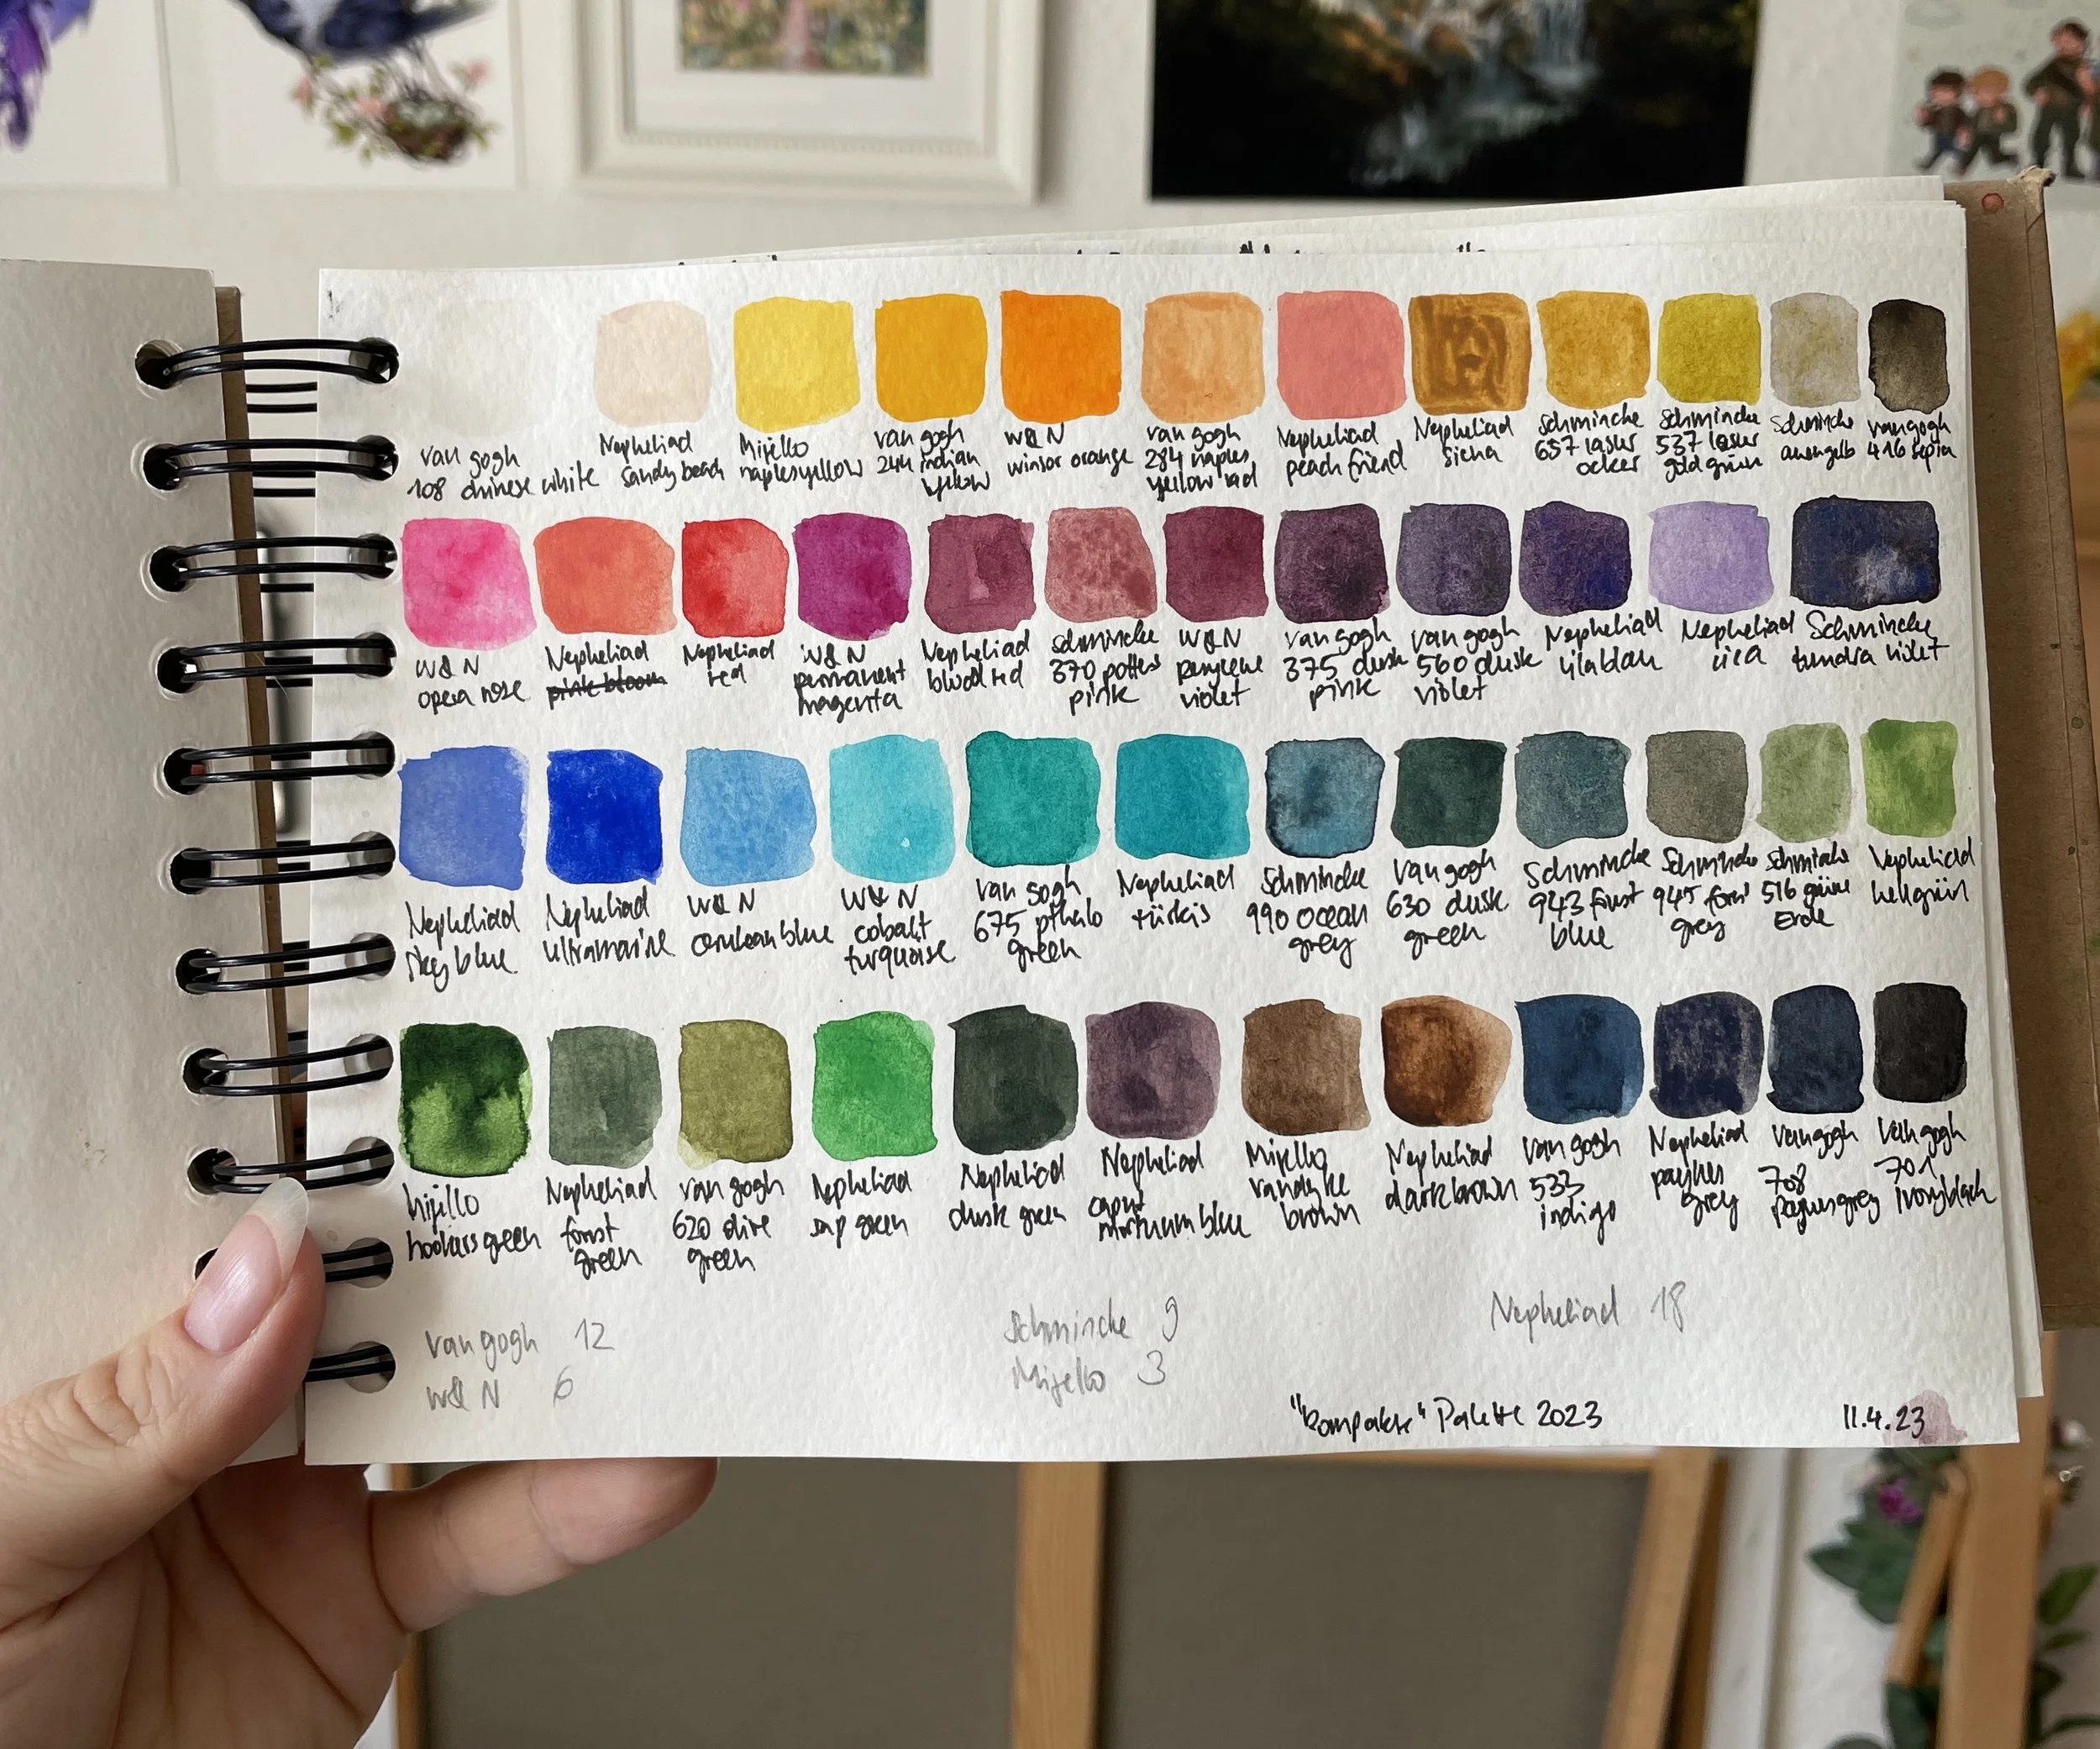 van gogh
108 chinese white
Nepheliad
sandy beach
Mijello
naplesyellow
van gogh
244 indian
yellow
W&N
winsor orange
van gogh
284 naples
yellow red
Nepheliad
peach friend
Nepheliad
siena
Schmincke
657 lasur
ocker
Schmincke
537 lasur
gold grün
Schmincke
van gogh
416 sepia
W&N
opera rose
Nepheliad
pink bloom
Nepheliad
red
W&N
permanent
magenta
Nepheliad
blood red
Schmincke
370 potters
pink
W&N
perylene
violet
van gogh
375 dusk
pink
van gogh
560 dusk
violet
Nepheliad
lilablau
Nepheliad
Schmincke
tundra violet
Nepheliad
sky blue
Nepheliad
ultramarine
W&N
cerulean blue
W&N
cobalt
turquoise
van gogh
675 pthalo
green
Nepheliad
türkis
Schmincke
990 ocean
grey
van gogh
630 dusk
green
Schmincke
943 forst
blue
Schmincke
945 forst
grey
Schmincke
516 grüne
Erde
Nepheliad
hellgrün
Mijello
hookers green
Nepheliad
forest
green
van gogh
620 olive
green
Nepheliad
sap green
Nepheliad
dusk green
Nepheliad
caput
mortuum blue
Mijello
vandyke
brown
Nepheliad
darkbrown
van gogh
533
indigo
Nepheliad
paynes
grey
van gogh
708
paynesgrey
van gogh
701
ivoryblack
van gogh 12
W&N 6
Schmincke 9
Mijello 3
Nepheliad 18
"kompakte" Palette 2023
11.4.23